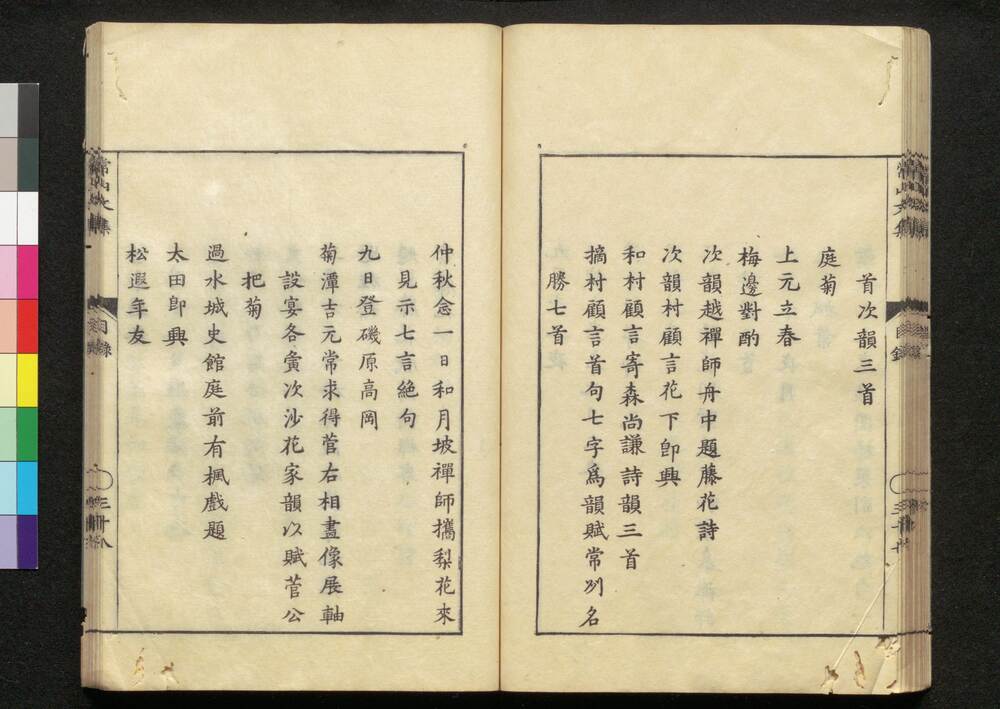 首次韻三首
庭菊
上元立春
梅邊對酌
次韻越禪師舟中題藤花詩
次韻村顧言花下卽興
和村顧言寄森尚謙詩韻三首
摘村顧言首句七字爲韻賦常州名
勝七首
仲秋念一日和月坡禪師攜梨花來
見示七言絕句
九日登磯原高岡
菊潭吉元常求得菅右相畫像展軸
設宴各賡次沙花家韻以賦菅公
把菊
過水城史館庭前有楓戲題
太田卽興
松遐年友